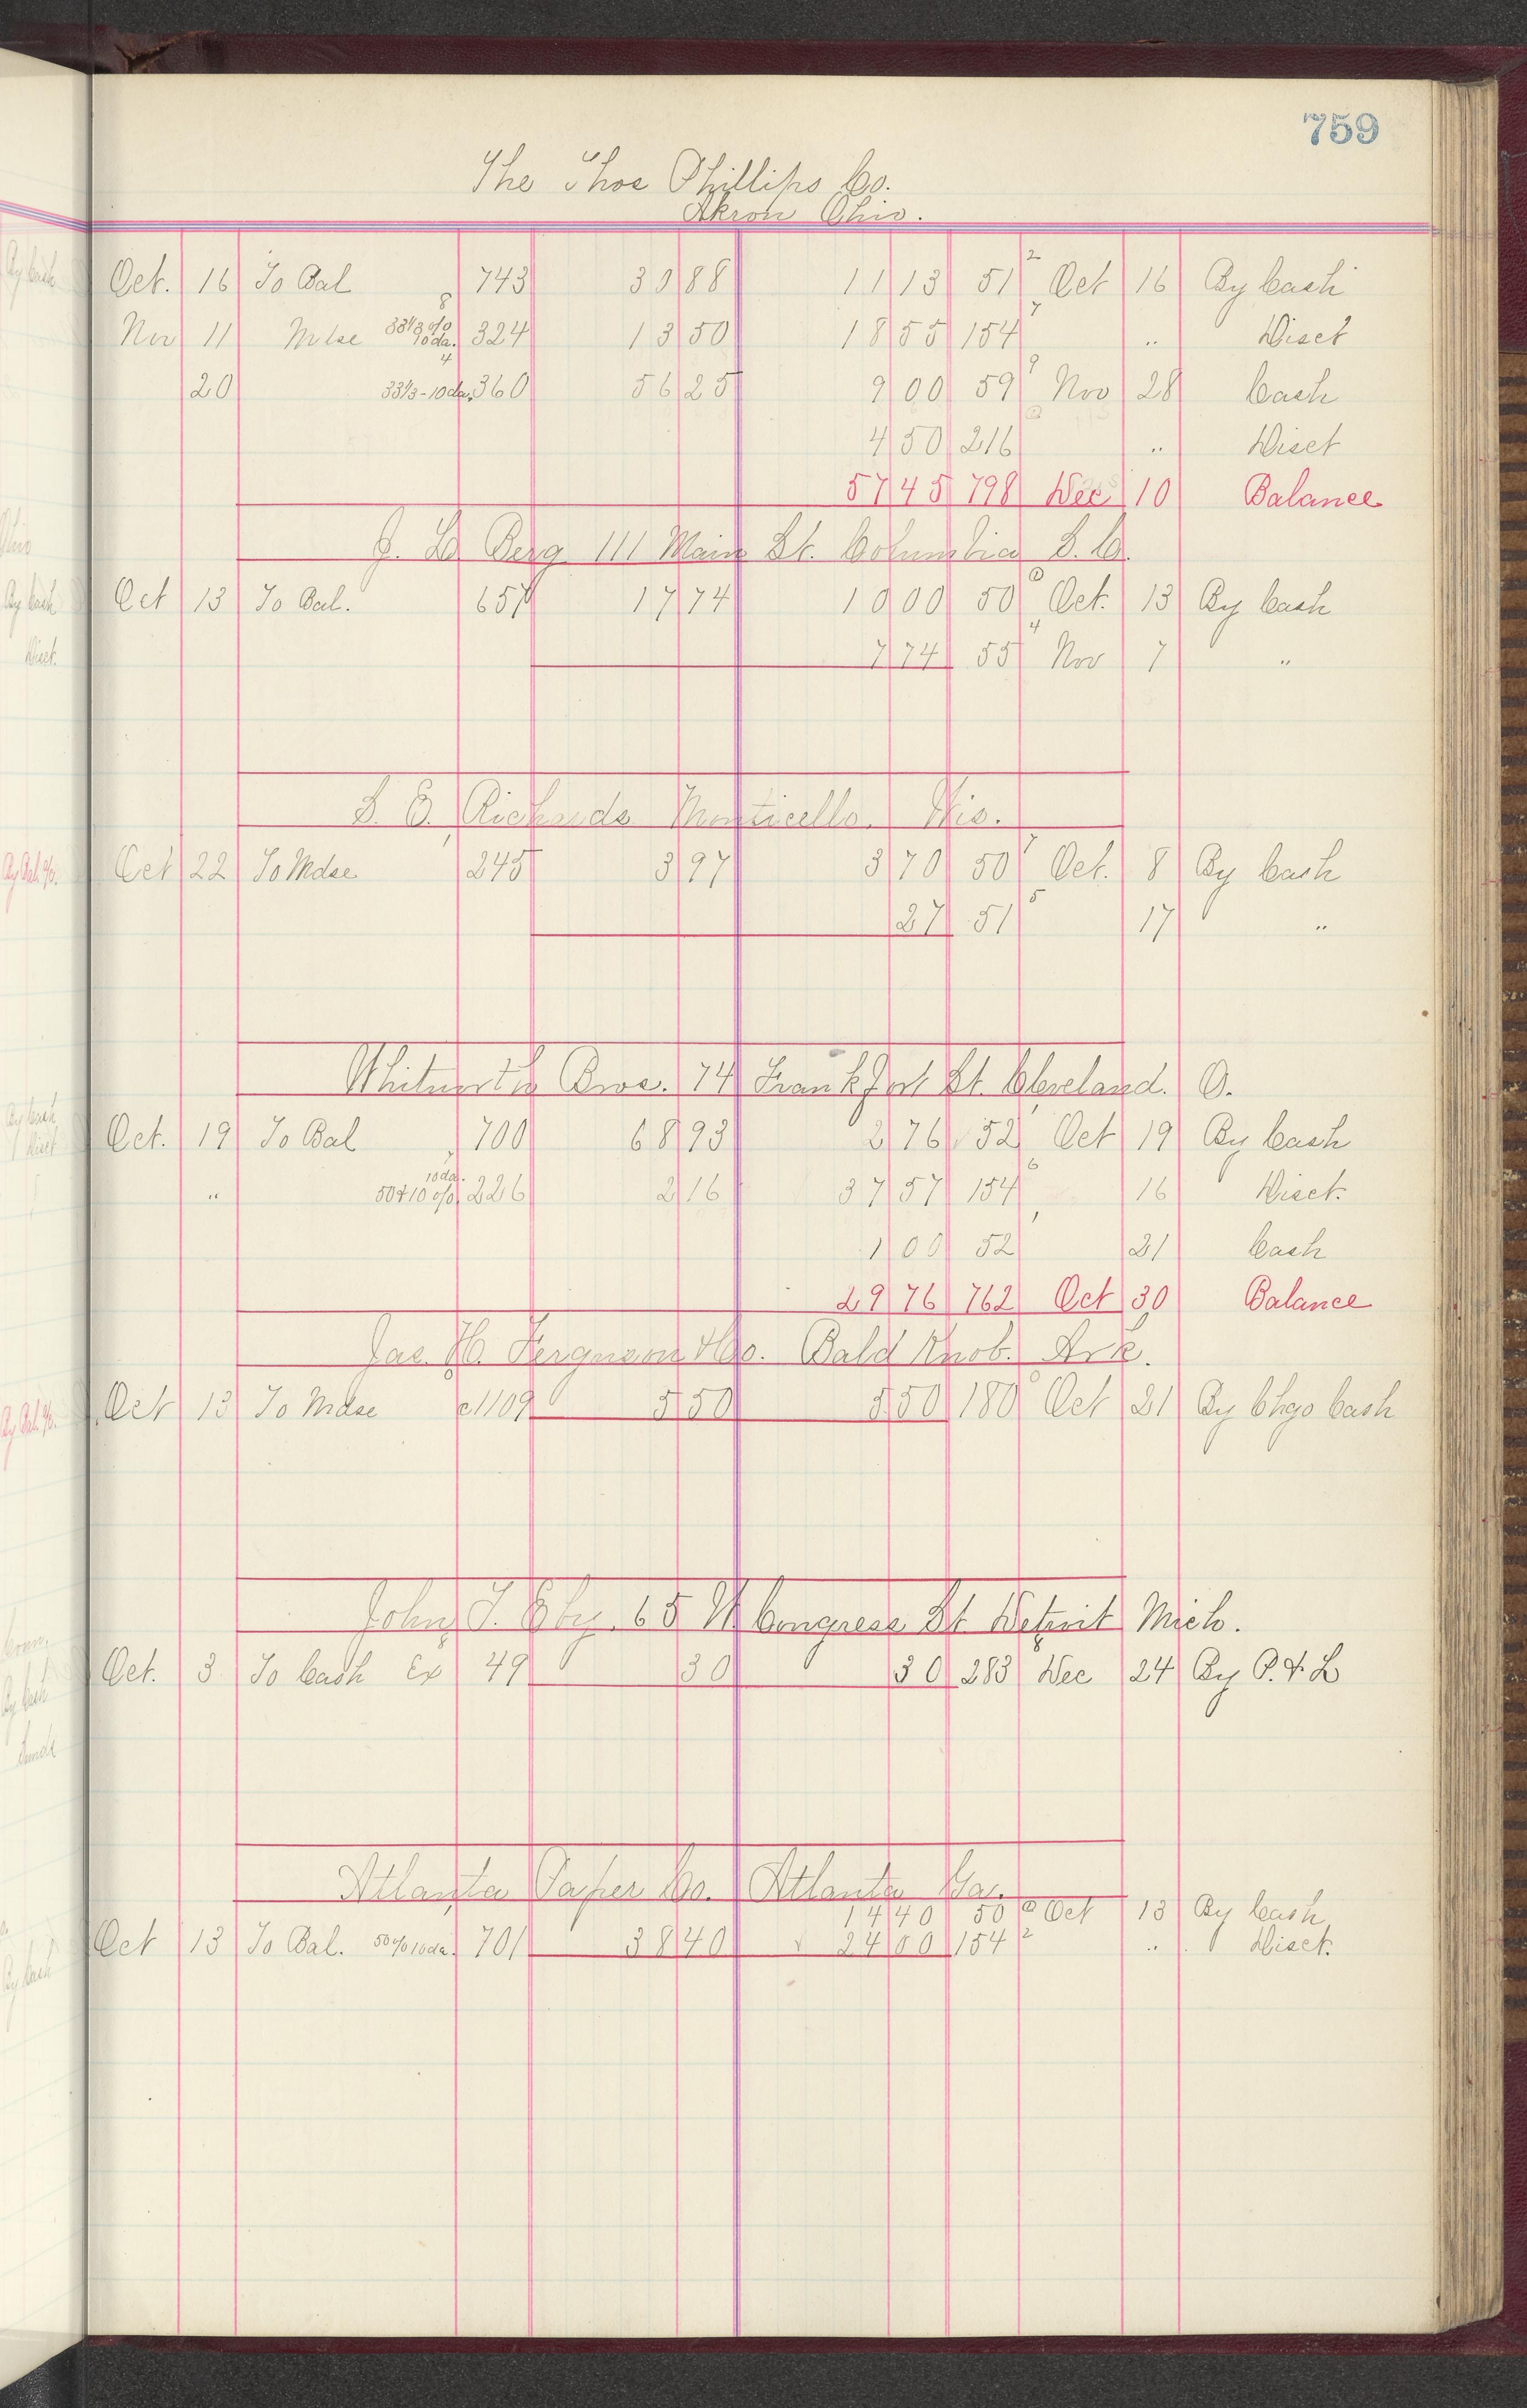 759
The Thos Phillips Co.
Akron Ohio.
Oct. 16 To Bal 743 30 88 11 13 51 2 Oct 16 By Cash
Nov 11 Mdse 33 1/3 % 10 da. 8 324 13 50 18 55 154 7 .. Disct
20 33 1/3 - 10 da. 4 360 56 25 9 00 59 9 Nov 28 Cash
4 50 216 .. Disct
57 45 798 Dec 10 Balance
111 Main St. Columbia S.C.
Oct 13 To Bal. 657 17 74 10 00 50 0 Oct. 13 By Cash
7 74 55 4 Nov 7 "
S. E. Richards Monticello. Wis.
Oct 22 To Mdse 245 3 97 3 70 50 7 Oct. 8 By Cash
27 51 5 17 "
Whitworth Bros. 74 Frankfort St. Cleveland. O.
Oct. 19 To Bal 700 68 93 2 76 52 Oct 19 By Cash
" 50 & 10 % 10 da. 226 2 16 37 57 154 6 16 Disct.
1 00 52 21 Cash
29 76 762 Oct 30 Balance
Jas. H. Ferguson & Co. Bald Knob. Ark.
Oct 13 To Mdse c1109 5 50 5 50 180 0 Oct 21 By Chgo Cash
John T. Eby. 65 W Congress St Detroit Mich.
Oct. 3 To Cash Ex 49 30 30 283 Dec 24 By P. & L
Atlanta Paper Co. Atlanta Ga.
14 40 50 Oct 13 By Cash
Oct 13 To Bal. 50 % 10 da. 701 38 40 24 00 154 2 .. Disct.